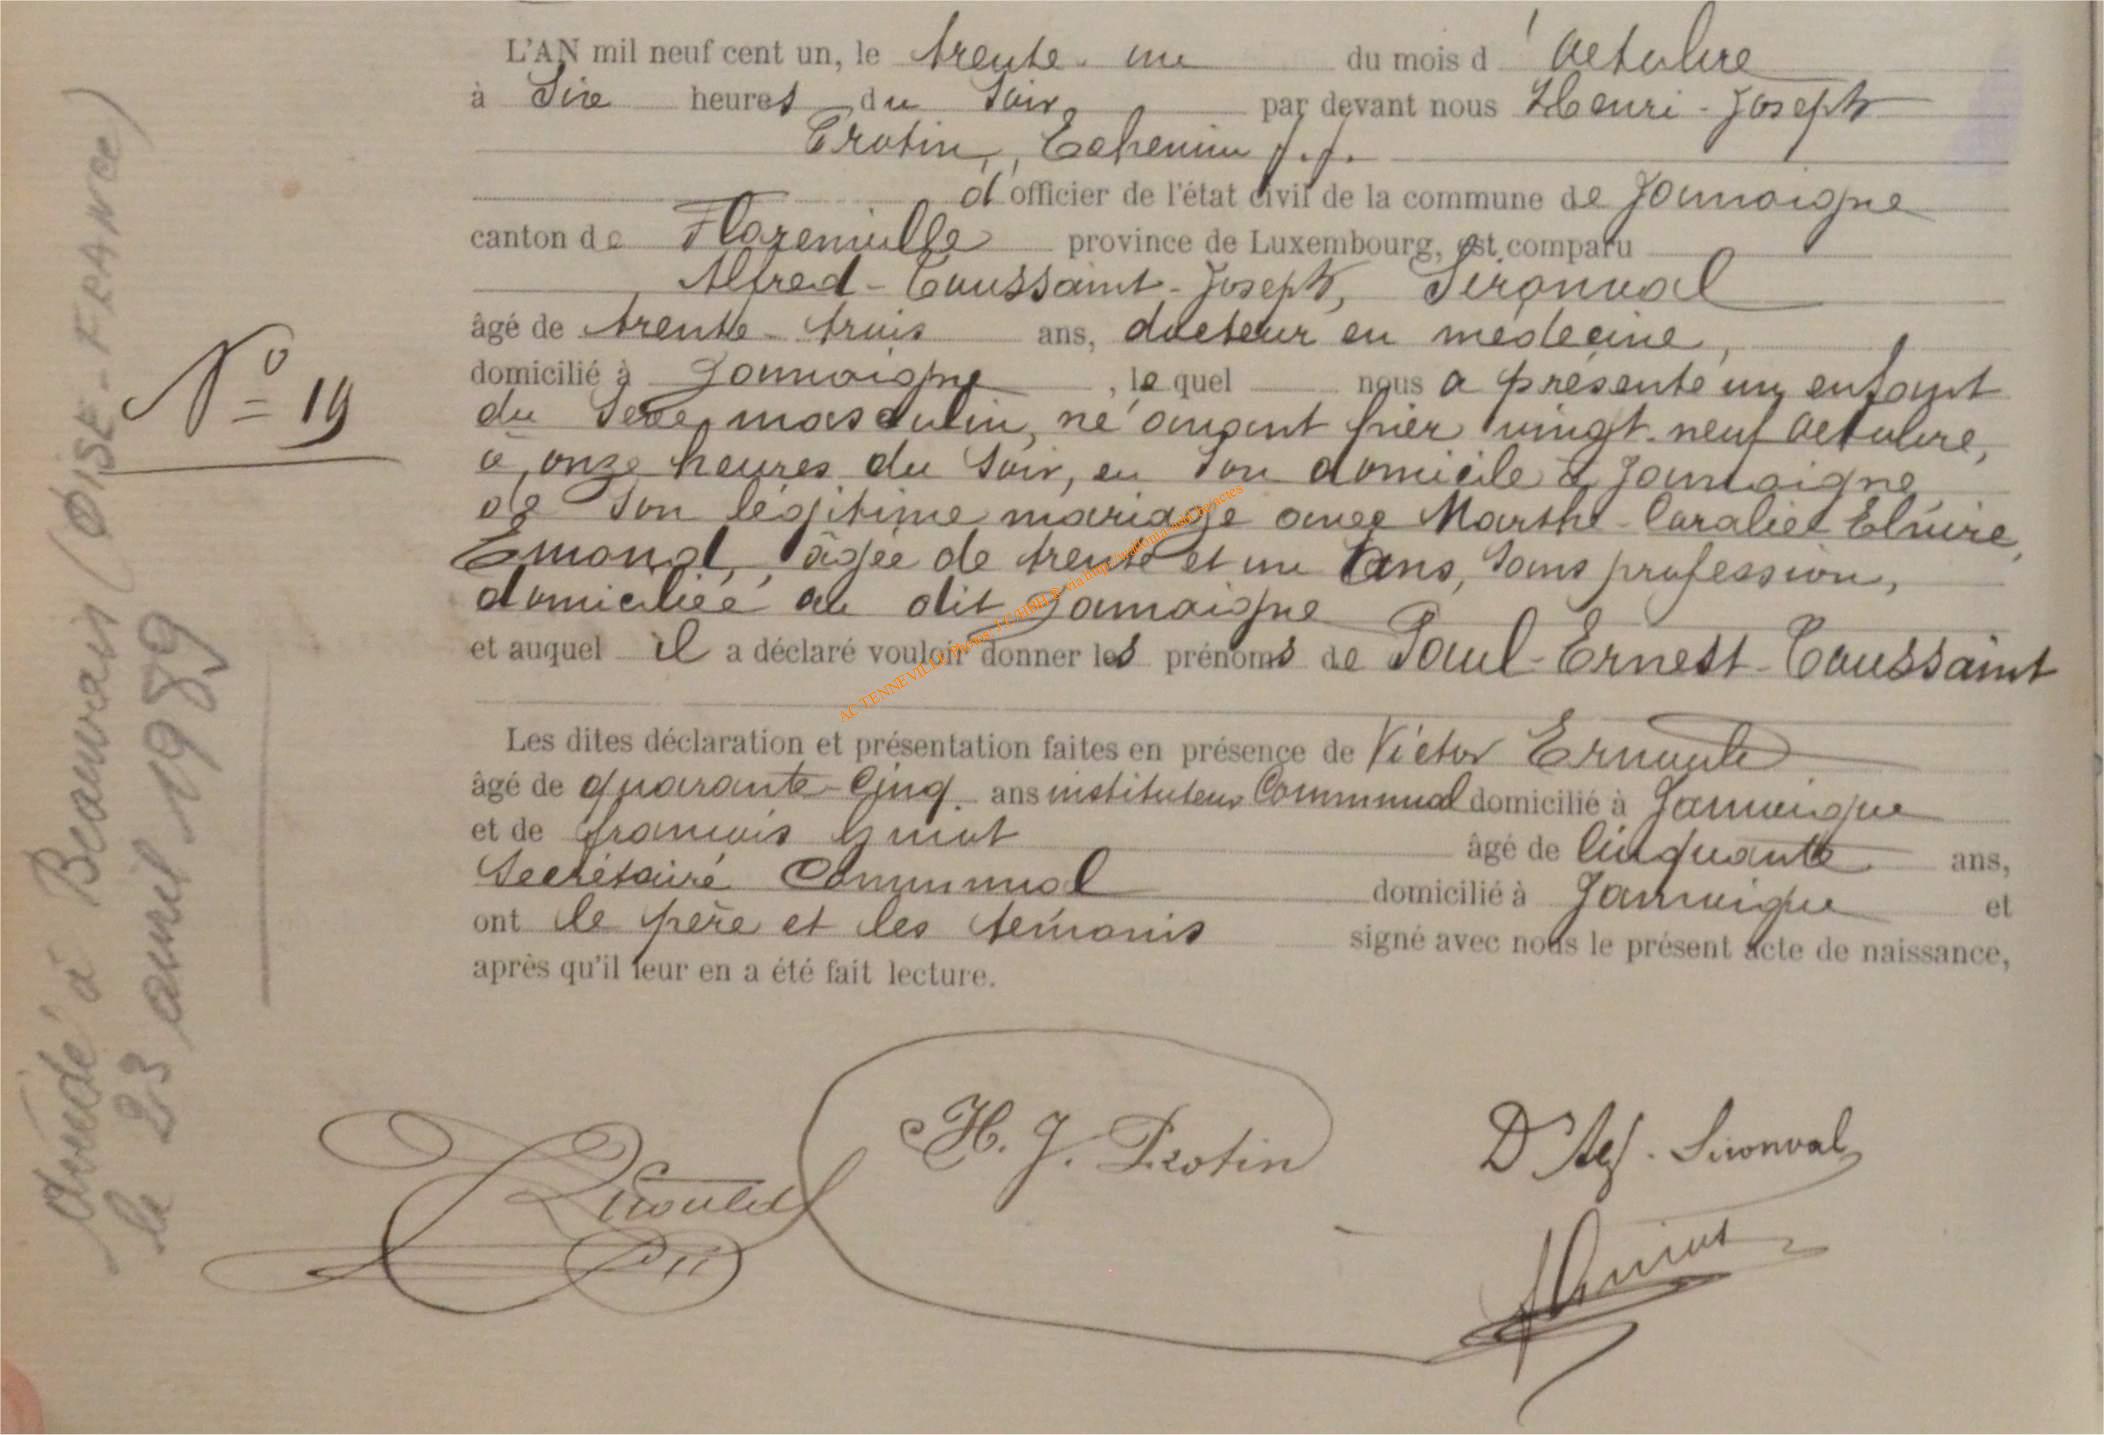 L'AN mil neuf cent un, le trente-un du mois d'Octobre
à Six heures du Soir, par devant nous Henri-Joseph
Protin, Echevin f.f.
d'officier de l'état civil de la commune de Jamoigne
canton de Florenville province de Luxembourg, est comparu
Alfred-Toussaint-Joseph, Sironval
âgé de trente-trois ans, docteur en médecine,
domicilié à Jamoigne, lequel nous a présenté un enfant
du Sexe masculin, né avant hier vingt-neuf Octobre,
à onze heures du Soir, en Son domicile à Jamoigne
de Son légitime mariage avec Marthe- Elvire
Emond, âgée de trente et un ans, Sans profession,
domiciliée au dit Jamoigne
et auquel il a déclaré vouloir donner les prénoms de Paul-Ernest-Toussaint
Les dites déclaration et présentation faites en présence de Victor
âgé de quarante-Cinq ans instituteur Communal domicilié à Jamoigne
et de françois Guiot âgé de Cinquante ans,
Secrétaire Communal domicilié à Jamoigne et
ont le père et les témoins signé avec nous le présent acte de naissance,
après qu'il leur en a été fait lecture.
N° 19
décédé à Beauvais (OISE-FRANCE)
le 23 avril 1989
H. J. Protin
Dr Alf. Sironval
Guiot
AC TENNEVILLE